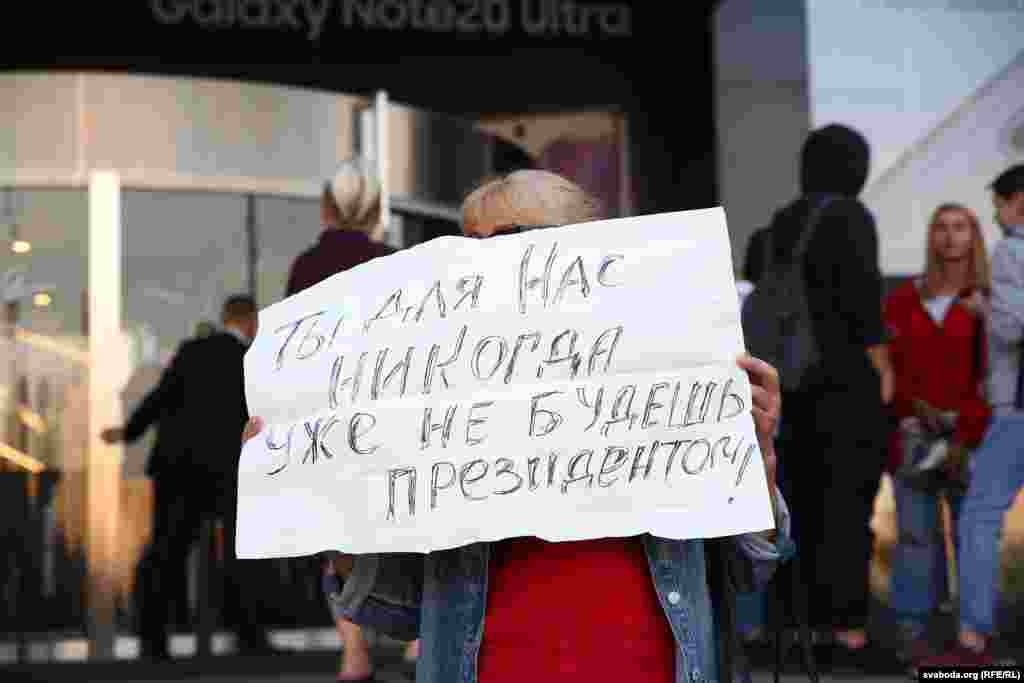 Galaxy Note20 Ultra
ТЫ ДЛЯ НАС
НИКОГДА
УЖЕ НЕ БУДЕШЬ
ПРЕЗИДЕНТОМ!
svaboda.org (RFE/RL)